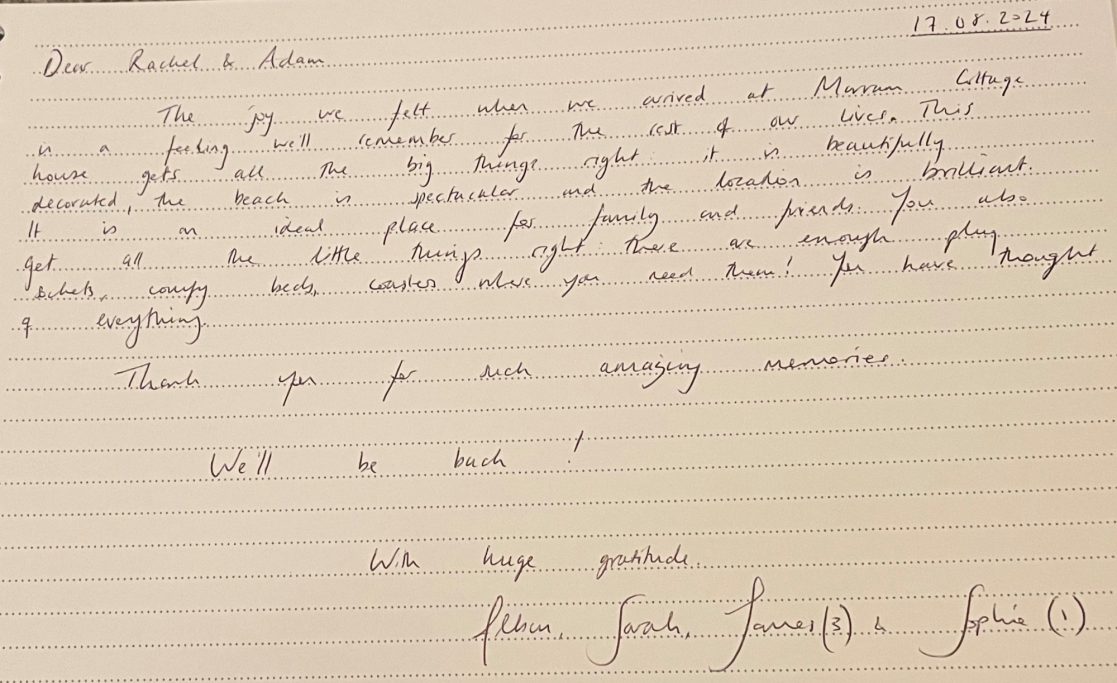 17.08.2024
Dear Rachel & Adam
The joy we felt when we arrived at Marram Cottage
is a feeling we'll remember for the rest of our lives. This
house gets all the big things right: it is beautifully
decorated, the beach is spectacular and the location is brilliant.
It is an ideal place for family and friends. You also
get all the little things right: there are enough plug
sockets, comfy beds, coasters where you need them! You have thought
of everything.
Thank you for such amazing memories.
We'll be back!
With huge gratitude.
Sarah, James (3) & Sophie (1)